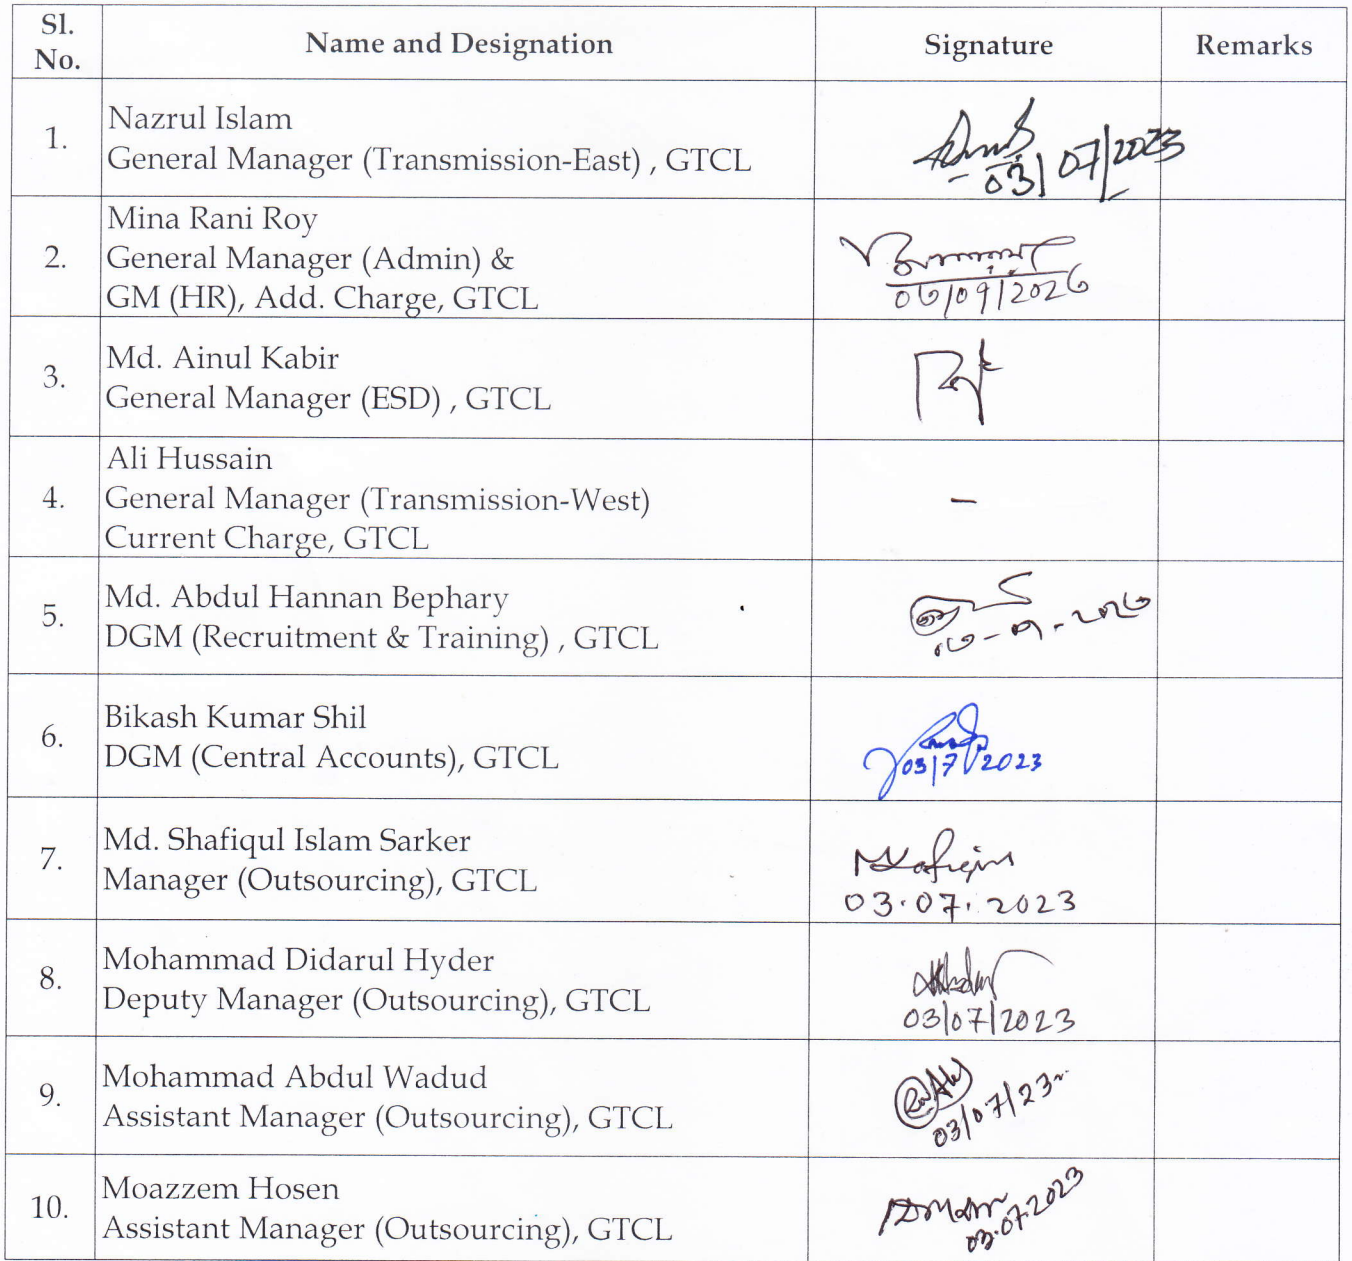 Sl. No.
Name and Designation
Signature
Remarks
1.
Nazrul Islam
General Manager (Transmission-East) , GTCL
03/07/2023
2.
Mina Rani Roy
General Manager (Admin) &
GM (HR), Add. Charge, GTCL
০৩/০৭/২০২৩
3.
Md. Ainul Kabir
General Manager (ESD) , GTCL
4.
Ali Hussain
General Manager (Transmission-West)
Current Charge, GTCL
–
5.
Md. Abdul Hannan Bephary
DGM (Recruitment & Training) , GTCL
০৩-০৭-২০২৩
6.
Bikash Kumar Shil
DGM (Central Accounts), GTCL
03/7/2023
7.
Md. Shafiqul Islam Sarker
Manager (Outsourcing), GTCL
03.07.2023
8.
Mohammad Didarul Hyder
Deputy Manager (Outsourcing), GTCL
03/07/2023
9.
Mohammad Abdul Wadud
Assistant Manager (Outsourcing), GTCL
03/07/23
10.
Moazzem Hosen
Assistant Manager (Outsourcing), GTCL
03.07.2023